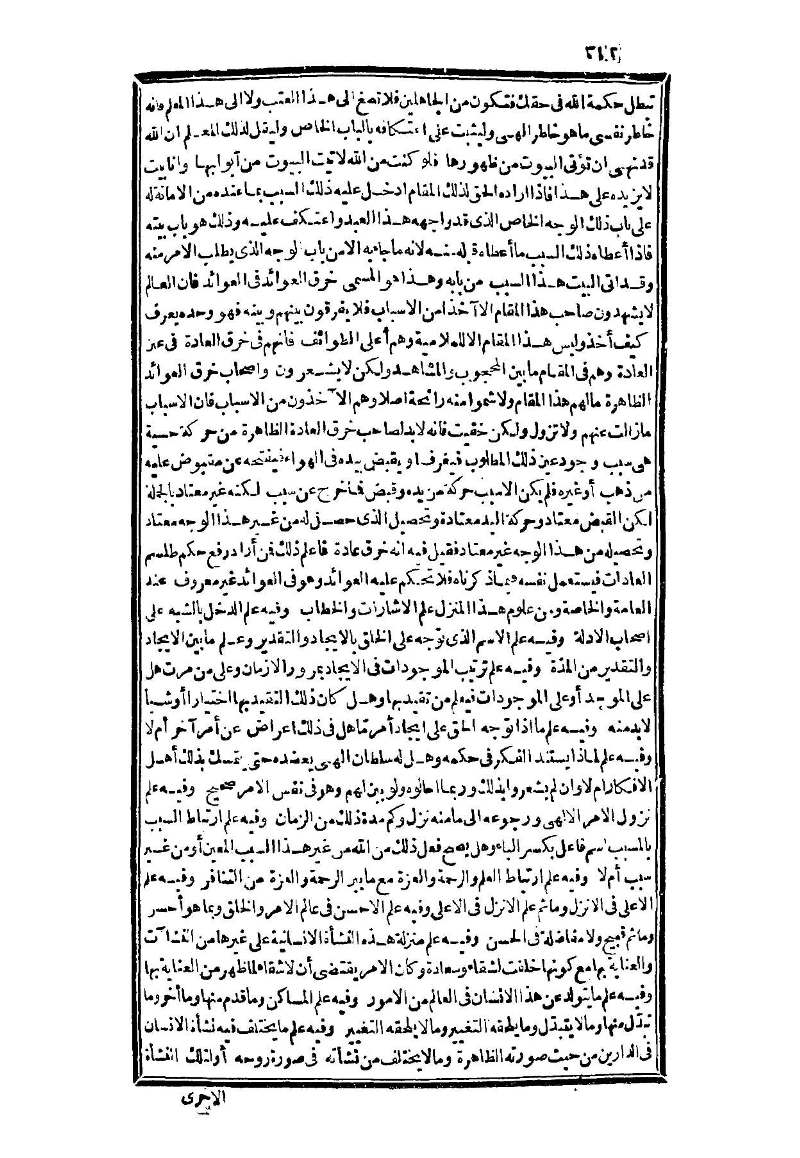 ٣١٢
تبطل حكمة الله فى حقك فتكون من الجاهلين فلا تصغ الى هذا العتب ولا الى هذا المعلم فانه
خاطر نفسى ما هو خاطر الهى وليثبت على اعتكافه بالباب الخاص وليقل لذلك المعلم ان الله
قد نهى ان تؤتى البيوت من ظهورها فلو كنت من الله لاتيت البيوت من أبوابها وانا بيت
لا يزيده على هذا فاذا اراده الحق لذلك المقام ادخل عليه ذلك السبب بما عنده من الامانة له
على باب ذلك الوجه الخاص الذى قد واجهه هذا العبد واعتكف عليه وذلك هو باب بيته
فاذا أعطاه ذلك السبب ما أعطاه قبله منه لانه ما جاءه الا من باب الوجه الذى يطلب الامر منه
وقد اتى البيت هذا السبب من بابه وهذا هو المسمى خرق العوائد فى العوائد فان العالم
لا يشهدون صاحب هذا المقام الا آخذا من الاسباب فلا يفرقون بينهم وبينه فهو وحده يعرف
كيف أخذ وليس هذا المقام الا للملامية وهم أعلى الطوائف فانهم فى خرق العادة فى عين
العادة وهم فى المقام ما بين المحجوب والمشاهد ولكن لا يشعرون واصحاب خرق العوائد
الظاهرة ما لهم هذا المقام ولا شموا منه رائحة اصلا وهم الآخذون من الاسباب فان الاسباب
ما زالت عنهم ولا تزول ولكن خفيت فانه لا بد لصاحب خرق العادة الظاهرة من حركة حسية
هى سبب وجود عين ذلك المطلوب فيغرف او يقبض بيده فى الهواء فيفتحه عن مقبوض عليه
من ذهب أو غيره فلم يكن الا بسبب حركة من يده وقبض فما خرج عن سبب لكنه غير معتاد بالجملة
لكن القبض معتاد وحركة اليد معتادة وتحصيل الذى حصل له من غير هذا الوجه معتاد
وتحصيله من هذا الوجه غير معتاد فقيل فيه انه خرق عادة فاعلم ذلك فمن أراد رفع حكم طلسم
العادات فيستعمل نفسه فيما ذكرناه فلا تتحكم عليه العوائد وهو فى العوائد غير معروف عند
العامة والخاصة ومن علوم هذا المنزل علم الاشارات والخطاب وفيه علم الدخل بالشبه على
اصحاب الادلة وفيه علم الاسم الذى توجه على الخلق بالايجاد والتقدير وعلم ما بين الايجاد
والتقدير من المدة وفيه علم ترتيب الموجودات فى الايجاد بمرور الازمان وعلى من مرت هل
على الموجد أو على الموجودات فيعلم من تقيد بها وهل كان ذلك التقييد بها اختيارا أو شيأ
لا بد منه وفيه علم ما اذا توجه الحق على ايجاد أمر ما هل فى ذلك اعراض عن أمر آخر أم لا
وفيه علم لماذا يستند الفكر فى حكمه وهل له سلطان الهى يعضده حتى يتمسك بذلك أهل
الافكار ام لا وان لم يشعروا بذلك وربما احالوه ولو بين لهم وهو فى نفس الامر صحيح وفيه علم
نزول الامر الالهى ورجوعه الى ما منه نزل وكم مدة ذلك من الزمان وفيه علم ارتباط السبب
بالمسبب اسم فاعل بكسر الباء وهل يصح فعل ذلك من الله من غير هذا السبب المعين أو من غير
سبب أم لا وفيه علم ارتباط العلم والرحمة والعزة مع ما بين الرحمة والعزة من التنافر وفيه علم
الاعلى فى الانزل وما ثم علم الانزل فى الاعلى وفيه علم الاحسن فى عالم الامر والخلق وبما هو أحسن
وما ثم قبيح ولا مفاضلة فى الحسن وفيه علم منزلة هذه النشأة الانسانية على غيرها من النشآت
والعناية بها مع كونها خلقت لشقاء وسعادة وكان الامر يقتضى أن لا شقاء لما ظهر من العناية بها
وفيه علم ما يتولد عن هذا الانسان فى العالم من الامور وفيه علم المساكن وما قدم منها وما أخر وما
تبدل منها وما لا يتبدل وما يلحقه التغيير وما لا يلحقه التغيير وفيه علم ما يختلف فيه نشأة الانسان
فى الدارين من حيث صورته الظاهرة وما لا يختلف من نشأته فى صورة روحه أو لتلك النشأة
الاخرى